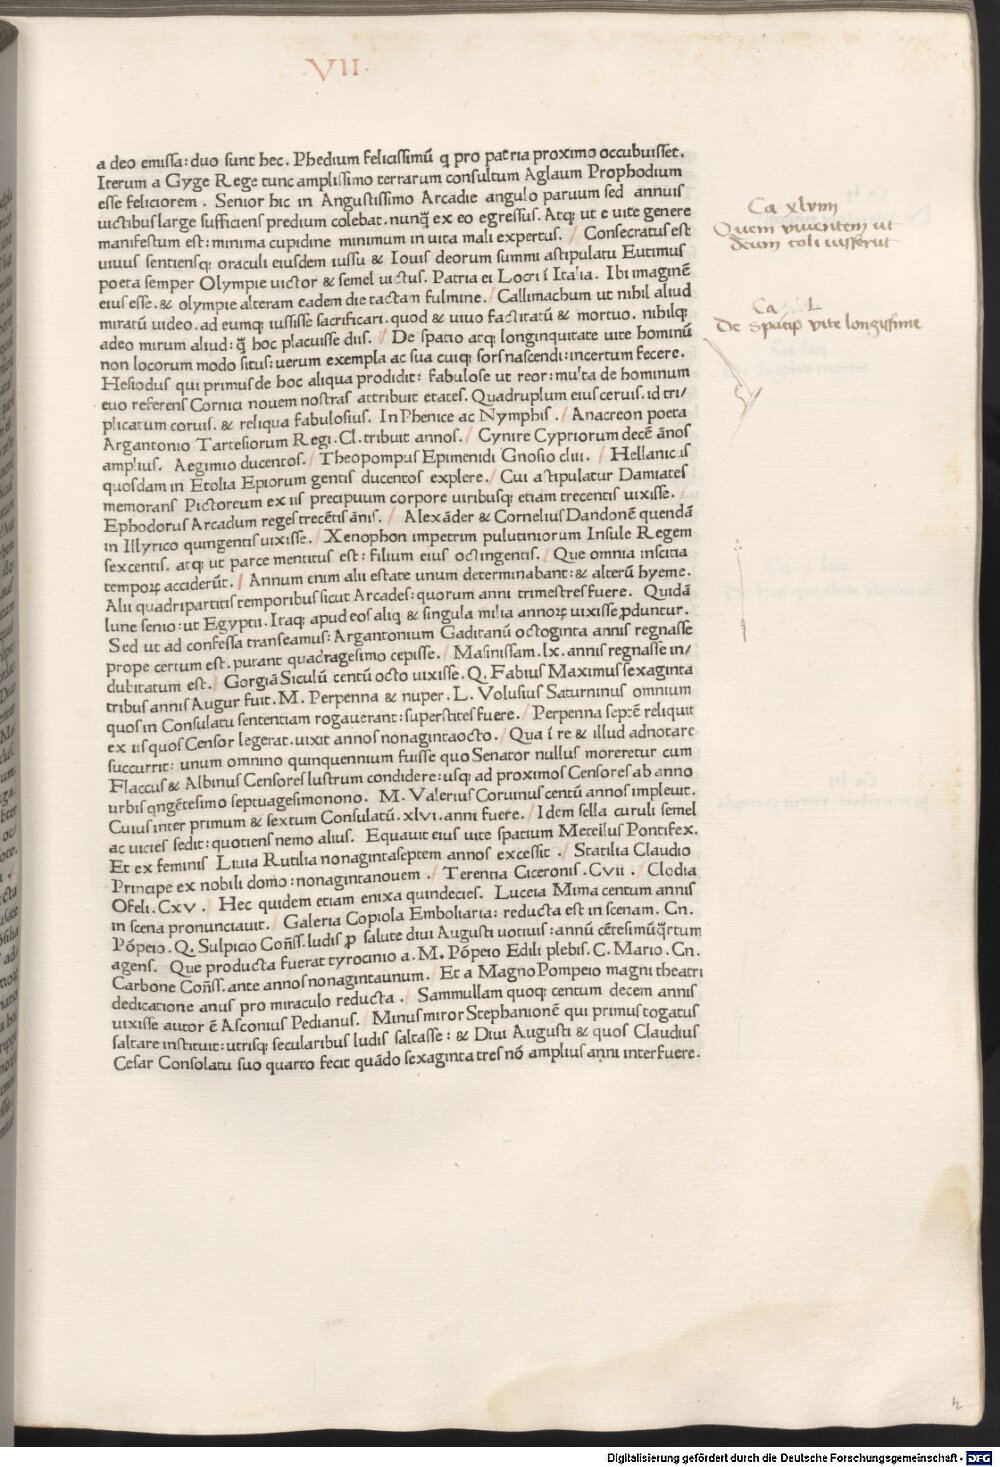 ·VII·
a deo emissa: duo sunt hec. Phedium felicissimū q pro patria proximo occubuisset.
Iterum a Gyge Rege tunc amplissimo terrarum consultum Aglaum Prophodium
esse feliciorem. Senior hic in Angustissimo Arcadie angulo paruum sed annuis
uictibus large sufficiens predium colebat. nunq̃ ex eo egressus. Atq; ut e uite genere
manifestum est: minima cupidine minimum in uita mali expertus. / Consecratus est
uiuus sentiensq; oraculi eiusdem iussu & Iouis deorum summi astipulatu Eutimus
poeta semper Olympie uictor & semel uictus. Patria ei Locri ī Italia. Ibi imaginē
eius esse. & olympie alteram eadem die tactan fulmine. / Callimachum ut nihil aliud
miratū uideo. ad eumq; iussisse sacrificari. quod & uiuo factitatū & mortuo. nihilq;
adeo mirum aliud: q̃ hoc placuisse diis. / De spatio atq; longinquitate uite hominū
non locorum modo situs: uerum exempla ac sua cuiq; sors nascendi: incertum fecere.
Hesiodus qui primus de hoc aliqua prodidit: fabulose ut reor: multa de hominum
euo referens Cornici nouem nostras attribuit etates. Quadruplum eius ceruis. id tri/
plicatum coruis. & reliqua fabulosius. In Phenice ac Nymphis. / Anacreon poeta
Argantonio Tartesiorum Regi. Cl. tribuit annos. / Cynire Cypriorum decē ānos
amplius. Aegimio ducentos. / Theopompus Epimenidi Gnosio clui. / Hellanicus
quosdam in Etolia Epiorum gentis ducentos explere. / Cui astipulatur Damiates
memorans Pictoreum ex iis precipuum corpore uiribusq; etiam trecentis uixisse. /
Ephodorus Arcadum reges trecētis ānis. / Alexāder & Cornelius Dandonē quendā
in Illyrico quingentis uixisse. / Xenophon impetrim pulutiniorum Insule Regem
sexcentis. atq; ut parce mentitus est: filium eius octingentis. / Que omnia inscitia
temporꝝ acciderūt. / Annum enim alii estate unum determinabant: & alterū hyeme.
Alii quadripartitis temporibus sicut Arcades: quorum anni trimestres fuere. Quidā
lune senio: ut Egyptii. Itaq; apud eos aliq & singula milia annoꝝ uixisse ꝓduntur.
Sed ut ad confessa transeamus: Argantonium Gaditanū octoginta annis regnasse
prope certum est. putant quadragesimo cepisse. / Masinissam. lx. annis regnasse in/
dubitatum est. / Gorgiā Siculū centū octo uixisse. Q. Fabius Maximus sexaginta
tribus annis Augur fuit. M. Perpenna & nuper. L. Volusius Saturninus omnium
quos in Consulatu sententiam rogauerant: superstites fuere. / Perpenna septē reliquit
ex iis quos Censor legerat. uixit annos nonagintaocto. / Qua ī re & illud adnotare
succurrit: unum omnino quinquennium fuisse quo Senator nullus moreretur cum
Flaccus & Albinus Censores lustrum condidere: usq; ad proximos Censores ab anno
urbis qngētesimo septuagesimonono. M. Valerius Coruinus centū annos impleuit.
Cuius inter primum & sextum Consulatū. xlvi. anni fuere. / Idem sella curuli semel
ac uicies sedit: quotiens nemo alius. Equauit eius uite spatium Metellus Pontifex.
Et ex feminis Liuia Rutilia nonagintaseptem annos excessit. / Statilia Claudio
Principe ex nobili domo: nonagintanouem. / Terentia Ciceronis. Cvii. / Clodia
Ofeli. Cxv. / Hec quidem etiam enixa quindecies. Luceia Mima centum annis
in scena pronunciauit. / Galeria Copiola Emboliaria: reducta est in scenam. Cn.
Pōpeio. Q. Sulpicio Coñss. ludis ꝓ salute diui Augusti uotiuis: annū cētesimūq̃rtum
agens. Que producta fuerat tyrocinio a. M. Pōpeio Edili plebis. C. Mario. Cn.
Carbone Coñss. ante annos nonagintaunum. / Et a Magno Pompeio magni theatri
dedicatione anus pro miraculo reducta. / Sammullam quoq; centum decem annis
uixisse autor ē Asconius Pedianus. / Minus miror Stephanionē qui primus togatus
saltare instituit: utrisq; secularibus ludis saltasse: & Diui Augusti & quos Claudius
Cesar Consolatu suo quarto fecit quādo sexaginta tres nō amplius anni interfuere.
Ca xlviii
Quem viuentem ut
deum coli iusserut
Ca L
De spatijs vite longissime
Digitalisierung gefördert durch die Deutsche Forschungsgemeinschaft - DFG